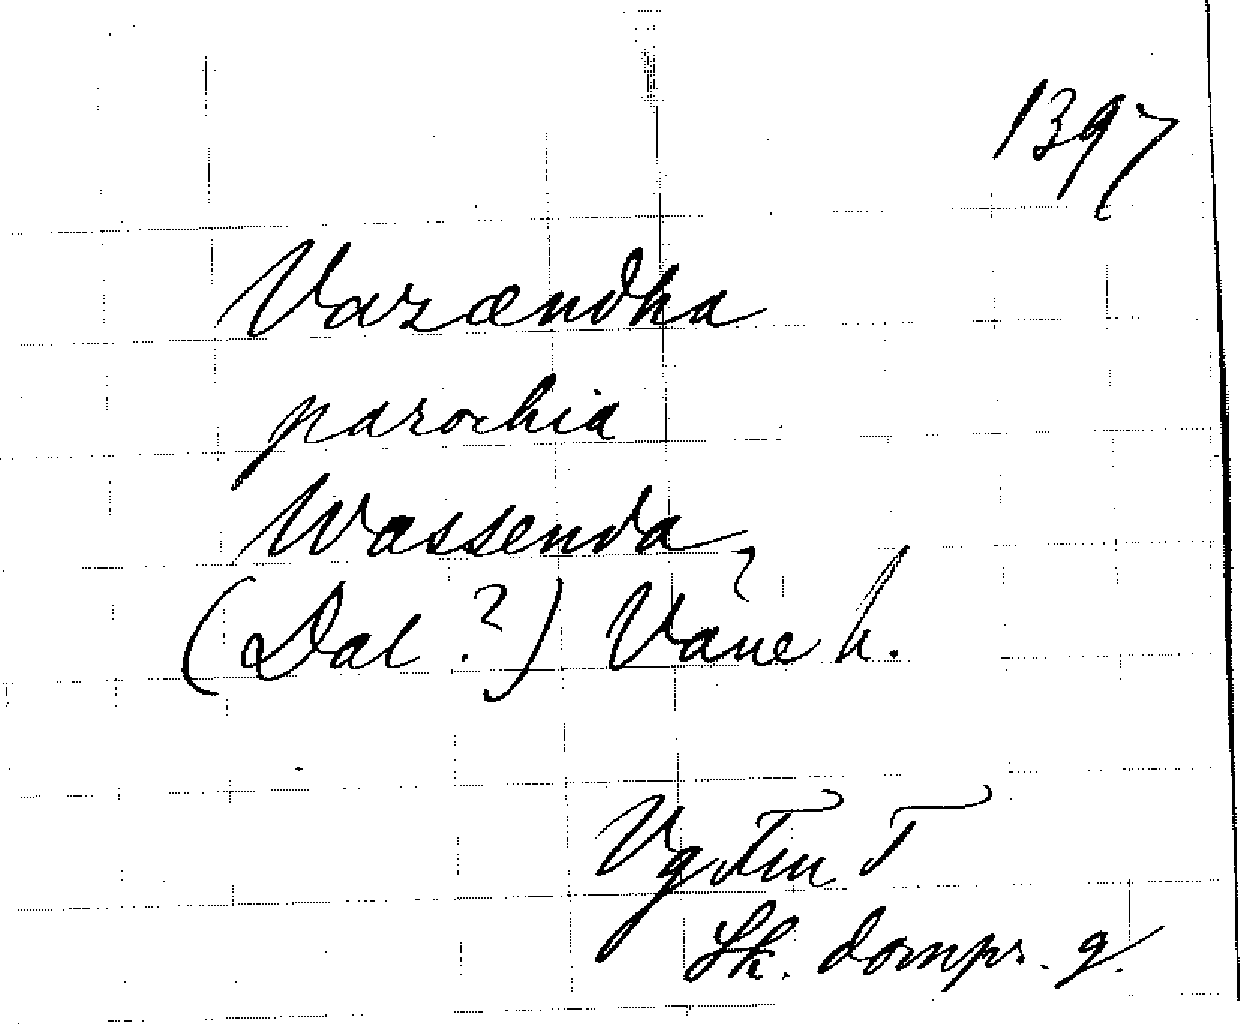 1397
Vazændka
parochia
Wassenda
(Dal ?) Väne h. ?
Vg Fm T
Sk. dompr. g.